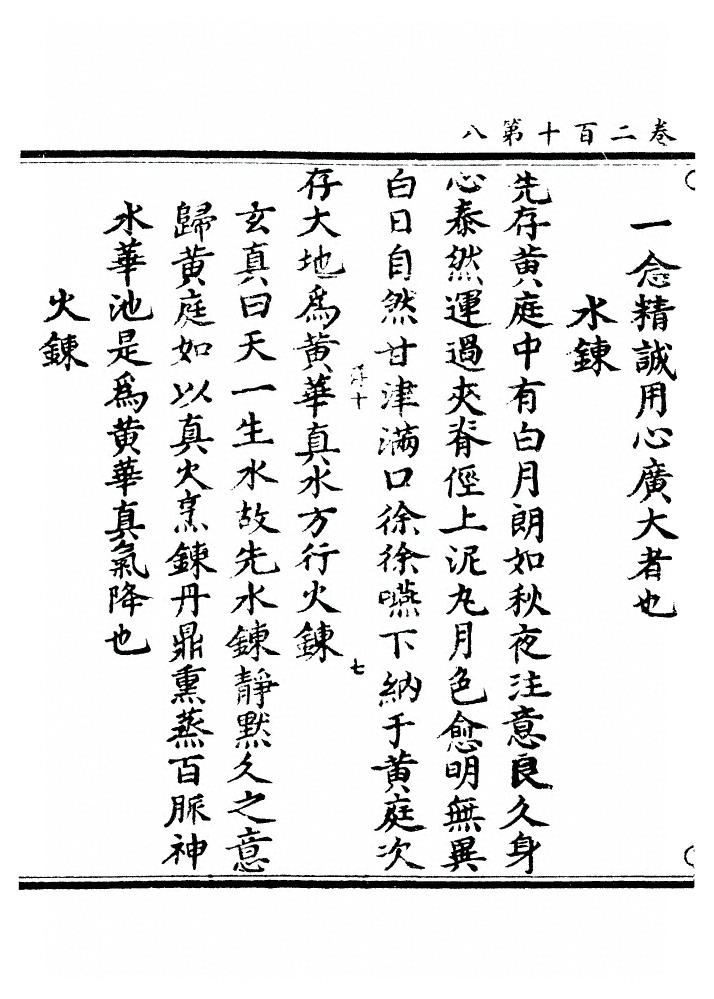 卷二百十第八
一念精誠用心廣大者也
水鍊
先存黃庭中有白月朗如秋夜注意良久身
心泰然運過夾脊徑上泥丸月色愈明無異
白日自然甘津滿口徐徐嚥下納于黃庭次
七
存大地爲黃華真水方行火鍊
玄真曰天一生水故先水鍊靜默久之意
歸黃庭如以真火烹鍊丹鼎熏蒸百脈神
水華池是爲黃華真氣降也
火鍊